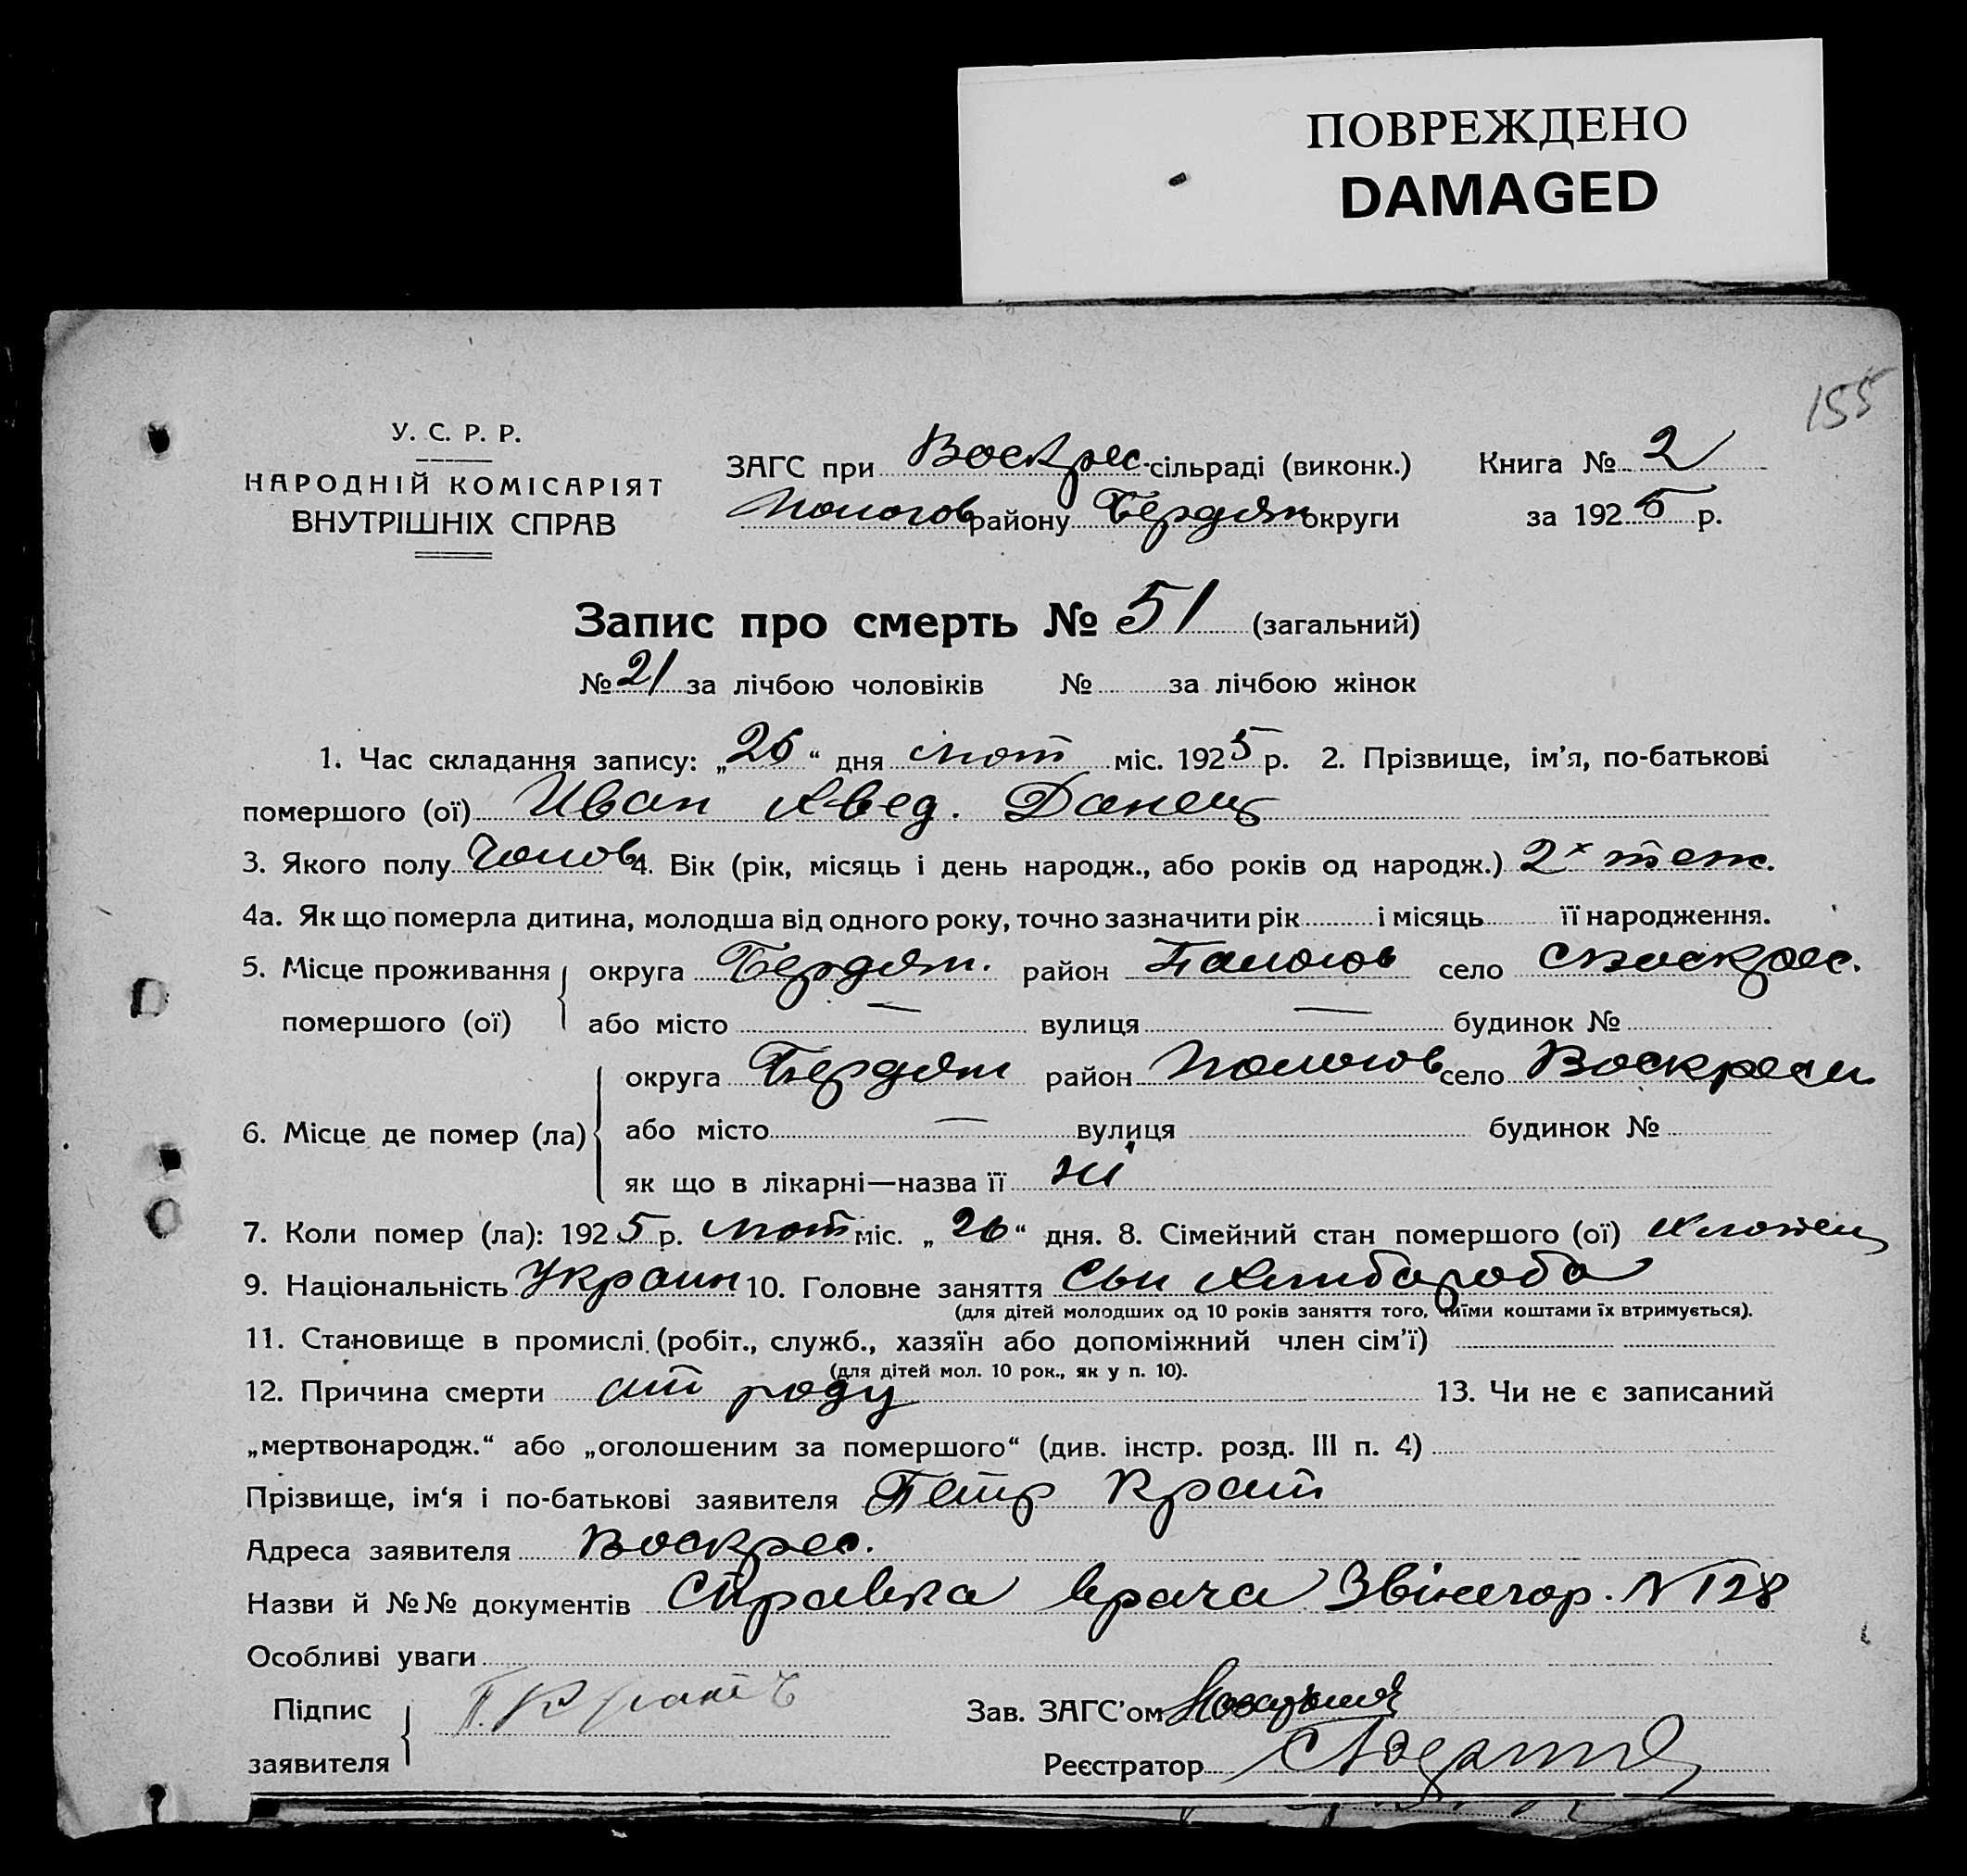 ПОВРЕЖДЕНО
DAMAGED
155
У. С. Р. Р.
НАРОДНІЙ КОМІСАРІЯТ
ВНУТРІШНІХ СПРАВ
ЗАГС при Воскрес. сільраді (виконк.) Книга № 2
Пологов району Бердян округи за 1925 р.
Запис про смерть № 51 (загальний)
№ 21 за лічбою чоловіків № за лічбою жінок
1. Час складання запису: „26“ дня лют міс. 1925 р. 2. Прізвище, ім'я, по-батькові
помершого (ої) Иван Авед. Данец
3. Якого полу Чолов 4. Вік (рік, місяць і день народж., або років од народж.) 2х теж.
4а. Як що померла дитина, молодша від одного року, точно зазначити рік і місяць її народження.
5. Місце проживання помершого (ої) округа Бердян. район Пологов село Воскрес.
або місто — вулиця — будинок №
6. Місце де помер (ла) округа Бердян район Пологов село Воскресен
або місто — вулиця будинок №
як що в лікарні—назва її ні
7. Коли помер (ла): 1925 р. лют міс. „26“ дня. 8. Сімейний стан помершого (ої)
9. Національність Украин 10. Головне заняття Сын Хлибороба
(для дітей молодших од 10 років заняття того, чиїми коштами їх втримується).
11. Становище в промислі (робіт., служб., хазяїн або допоміжний член сім'ї)
(для дітей мол. 10 рок., як у п. 10).
12. Причина смерти от роду 13. Чи не є записаний
„мертвонародж.“ або „оголошеним за помершого“ (див. інстр. розд. III п. 4)
Прізвище, ім'я і по-батькові заявителя Петр Крат
Адреса заявителя Воскрес.
Назви й №№ документів Справка врача Звінегор. N 128
Особливі уваги
Підпис заявителя П. Кратъ
Зав. ЗАГС'ом
Реєстратор